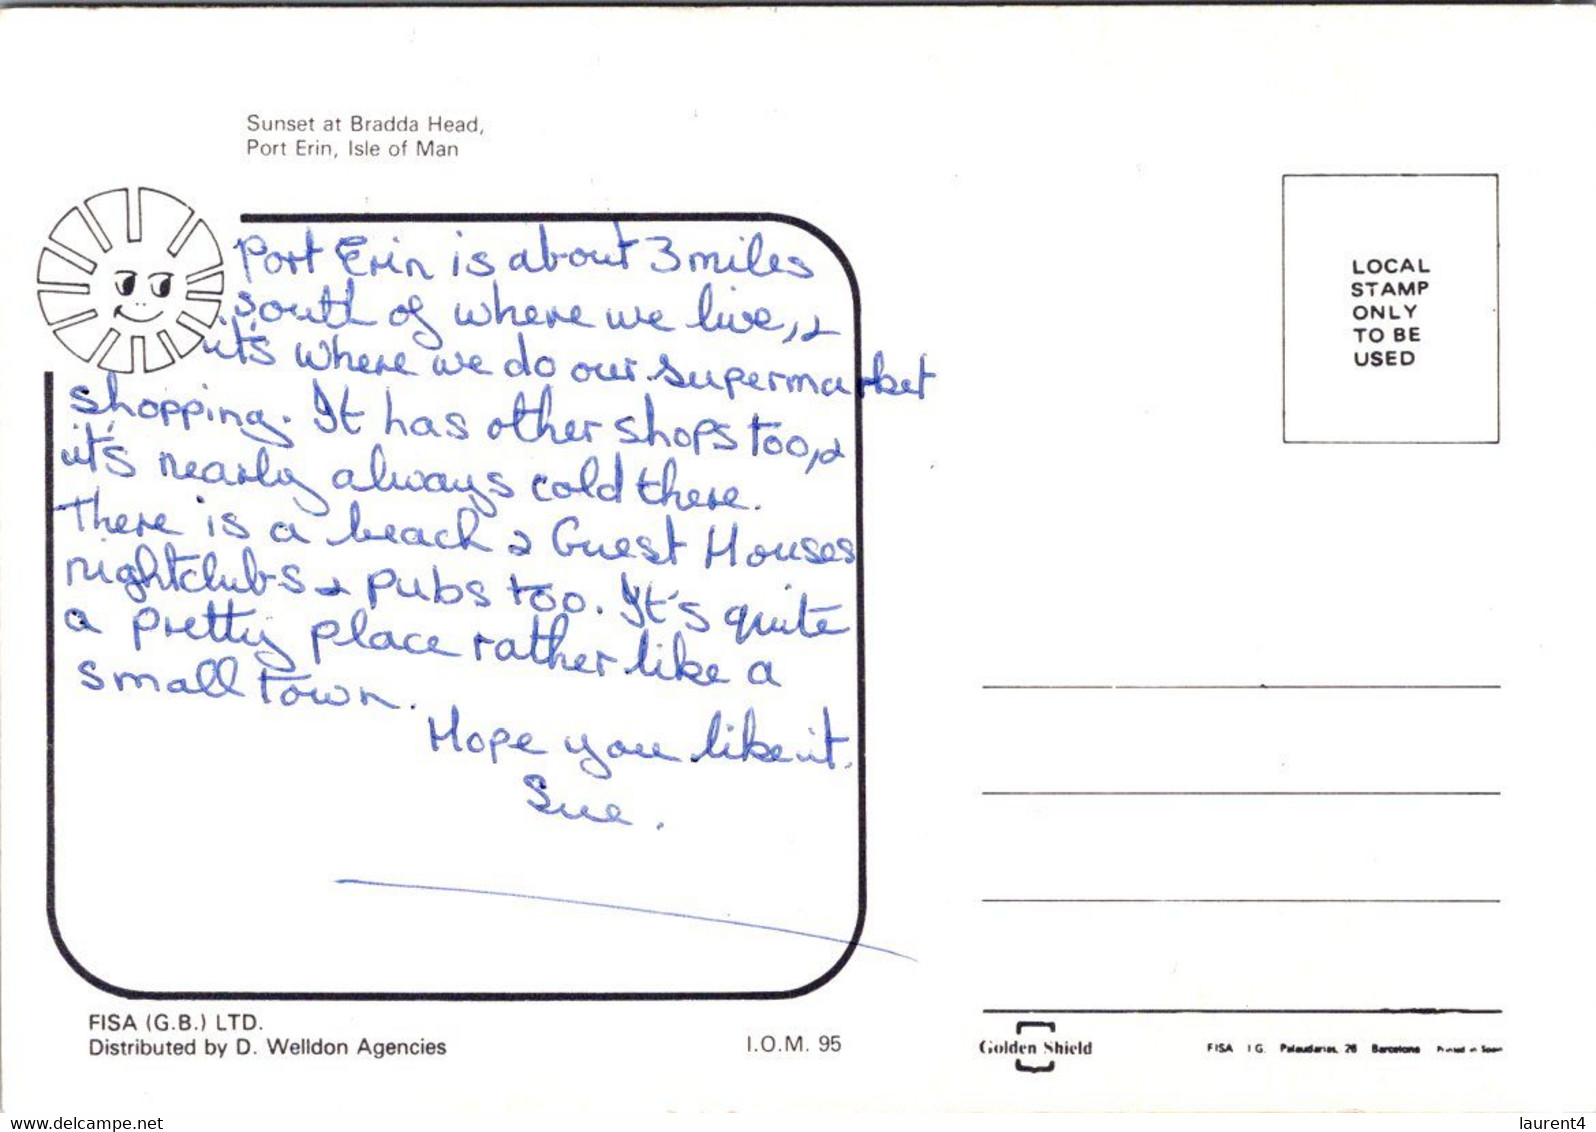 Sunset at Bradda Head,
Port Erin, Isle of Man
Port Erin is about 3 miles
south of where we live, &
it's where we do our supermarket
shopping. It has other shops too, &
it's nearly always cold there.
There is a beach & Guest Houses
nightclubs & pubs too. It's quite
a pretty place rather like a
small town.
Hope you like it.
Sue.
FISA (G.B.) LTD.
Distributed by D. Welldon Agencies
I.O.M. 95
LOCAL
STAMP
ONLY
TO BE
USED
Golden Shield
FISA I G. Palaudarias, 26 Barcelona Printed in Spain
www.delcampe.net
laurent4